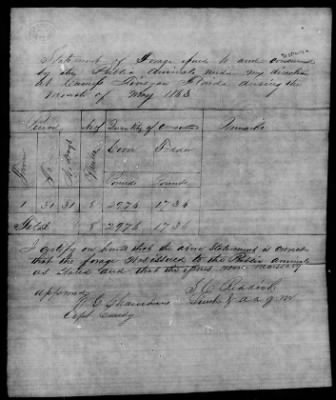 Statement of Forage issued to and consumed
by the Public Animals under my direction
at Camp Finegan Florida during the
month of May 1863
Period No of Quantity of Remarks
From To No days Mules Corn Fodder
Pounds Pounds
1 31 31 8 2976 1736
Total 8 2976 1736
I certify on honor that the above Statement is correct
that the forage was issued to the Public animals
as stated and that the issues were necessary
approved
W E Chambers
Capt Comdg
Lieut & A A Q M